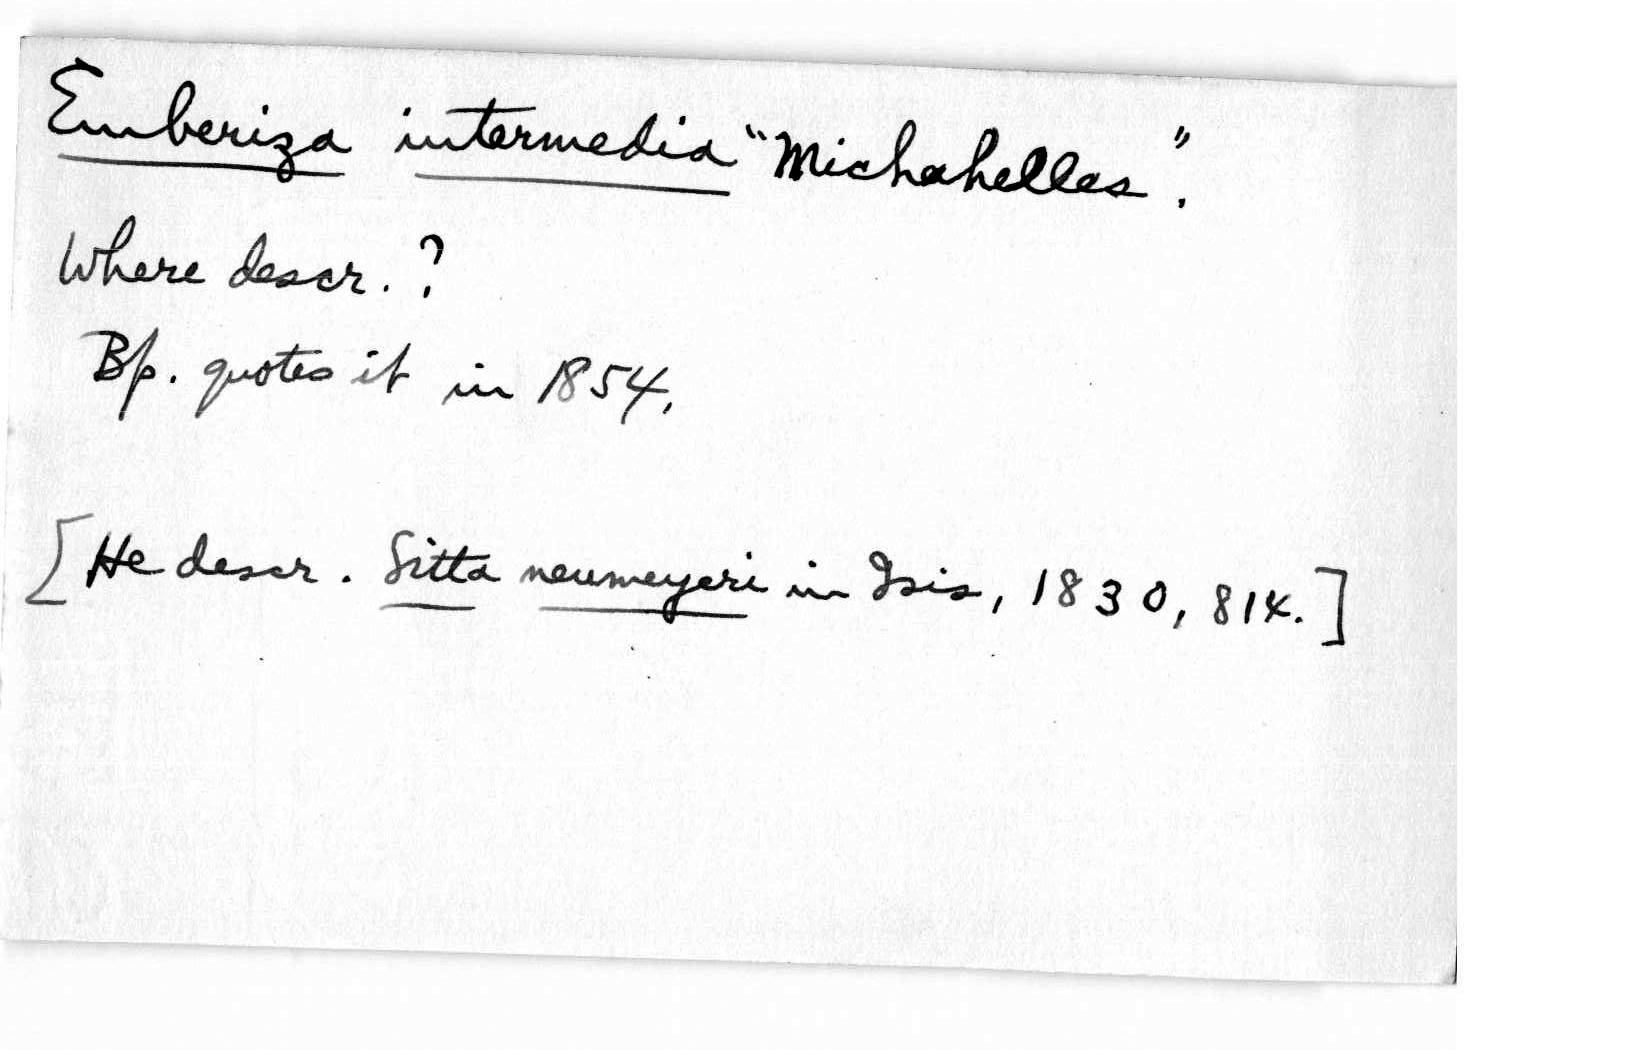 Emberiza intermedia "Michahelles".
Where descr.?
Bp. quotes it in 1854.
[He descr. Sitta neumeyeri in Isis, 1830, 814.]